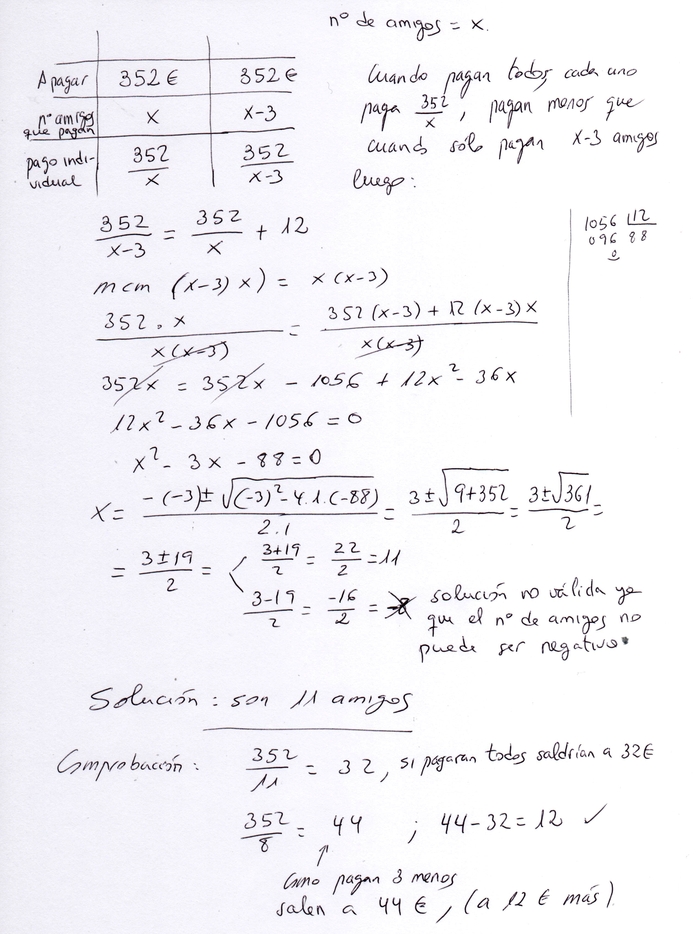 nº de amigos = x.
A pagar 352 € 352 €
nº amigos que pagan x x-3
pago indi-vidual 352/x 352/(x-3)
Cuando pagan todos cada uno
paga 352/x, pagan menos que
cuando sólo pagan x-3 amigos
luego:
352/(x-3) = 352/x + 12
1056 |12
096 88
0
mcm (x-3) x) = x(x-3)
352 . x / x(x-3) = 352(x-3) + 12(x-3)x / x(x-3)
352x = 352x - 1056 + 12x² - 36x
12x² - 36x - 1056 = 0
x² - 3x - 88 = 0
x = (-(-3) ± √((-3)² - 4.1.(-88))) / 2.1 = (3 ± √(9+352)) / 2 = (3 ± √361) / 2 =
= (3 ± 19) / 2 = < (3+19)/2 = 22/2 = 11
(3-19)/2 = -16/2 = -8 solución no válida ya
que el nº de amigos no
puede ser negativo.
Solución : son 11 amigos
Comprobación : 352/11 = 32, si pagaran todos saldrían a 32€
352/8 = 44 ; 44-32 = 12 ✓
↑
Como pagan 3 menos
salen a 44 €, (a 12 € más)